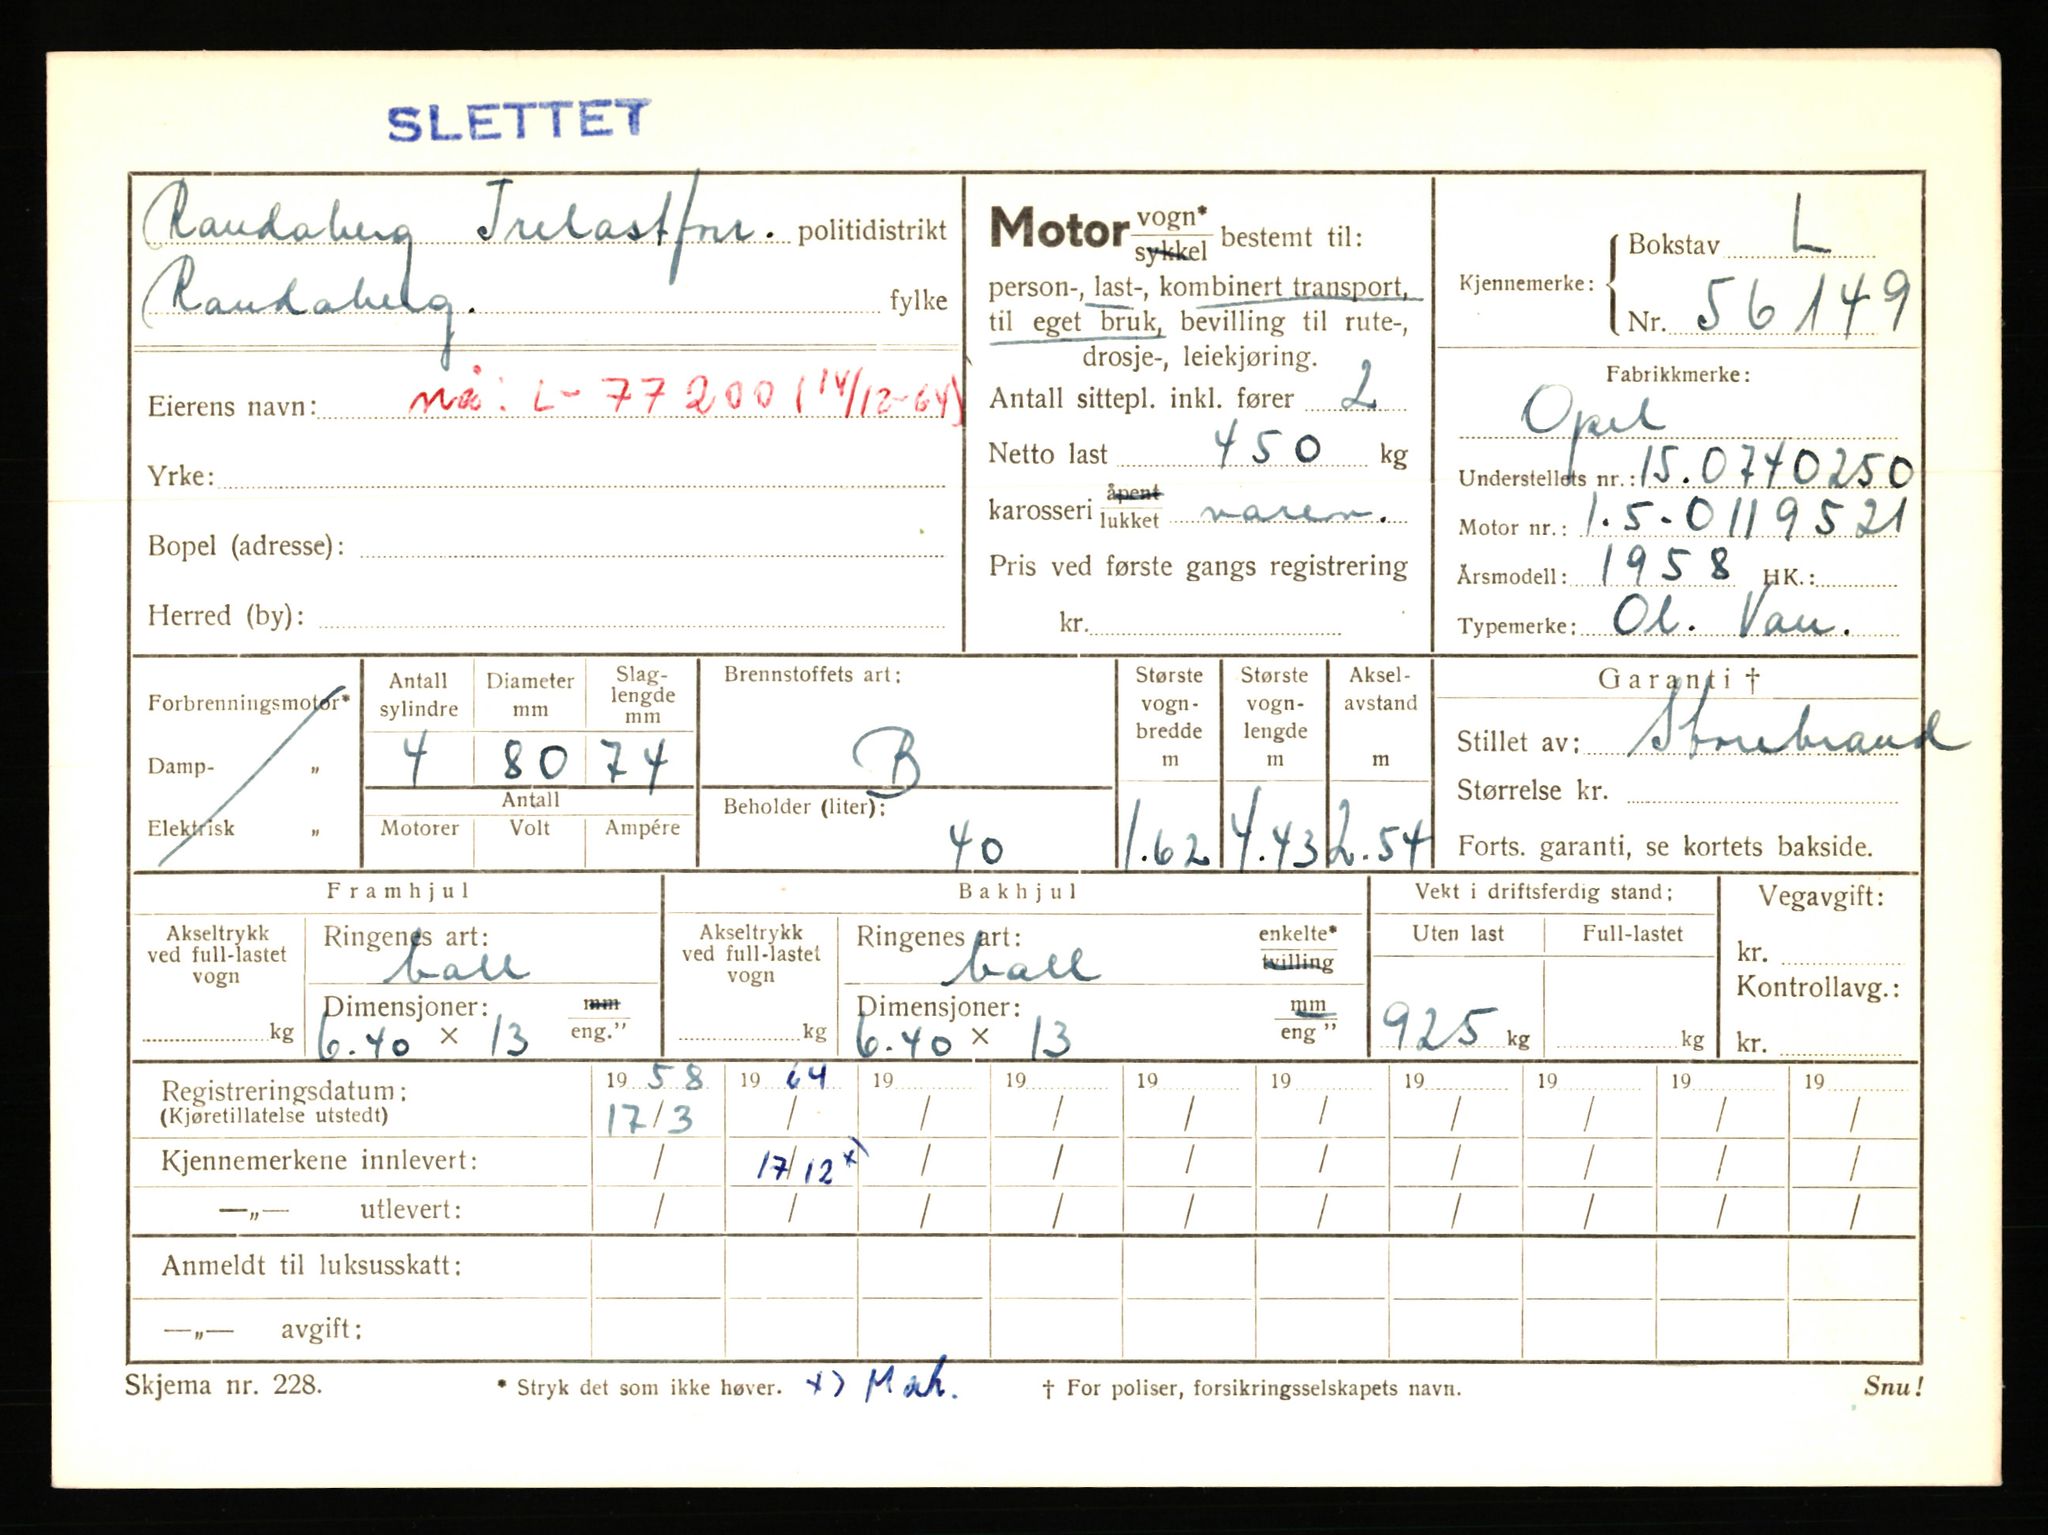 SLETTET
Randaberg Trelastforr. politidistrikt
Randaberg. fylke
Eierens navn: nå: L-77200 (14/12-64)
Yrke:
Bopel (adresse):
Herred (by):
Motor vogn* / sykkel bestemt til:
person-, last-, kombinert transport,
til eget bruk, bevilling til rute-,
drosje-, leiekjøring.
Antall sittepl. inkl. fører 2
Netto last 450 kg
karosseri åpent / lukket varev.
Pris ved første gangs registrering
kr.
Kjennemerke: Bokstav L
Nr. 56149
Fabrikkmerke:
Opel
Understellets nr.: 15.0740250
Motor nr.: 1.5-0119521
Årsmodell: 1958 HK.:
Typemerke: Ol. Van.
Forbrenningsmotor*
Damp- „
Elektrisk „
Antall sylindre 4
Diameter mm 80
Slag-lengde mm 74
Antall
Motorer Volt Ampére
Brennstoffets art: B
Beholder (liter): 40
Største vogn-bredde m 1.62
Største vogn-lengde m 4.43
Aksel-avstand m 2.54
Garanti †
Stillet av: Storebrand
Størrelse kr.
Forts. garanti, se kortets bakside.
Framhjul
Akseltrykk ved full-lastet vogn kg
Ringenes art: ball
Dimensjoner: mm / eng."
6.40 × 13
Bakhjul
Akseltrykk ved full-lastet vogn kg
Ringenes art: ball enkelte* / tvilling
Dimensjoner: mm / eng"
6.40 × 13
Vekt i driftsferdig stand:
Uten last Full-lastet
925 kg kg
Vegavgift:
kr.
Kontrollavg.:
kr.
Registreringsdatum: 1958 1964 19 19 19 19 19 19 19 19
(Kjøretillatelse utstedt) 17/3 / / / / / / / / /
Kjennemerkene innlevert: / 17/12 x) / / / / / / / /
—„— utlevert: / / / / / / / / / /
Anmeldt til luksusskatt:
—„— avgift:
Skjema nr. 228. * Stryk det som ikke høver. x) Mak. † For poliser, forsikringsselskapets navn. Snu!